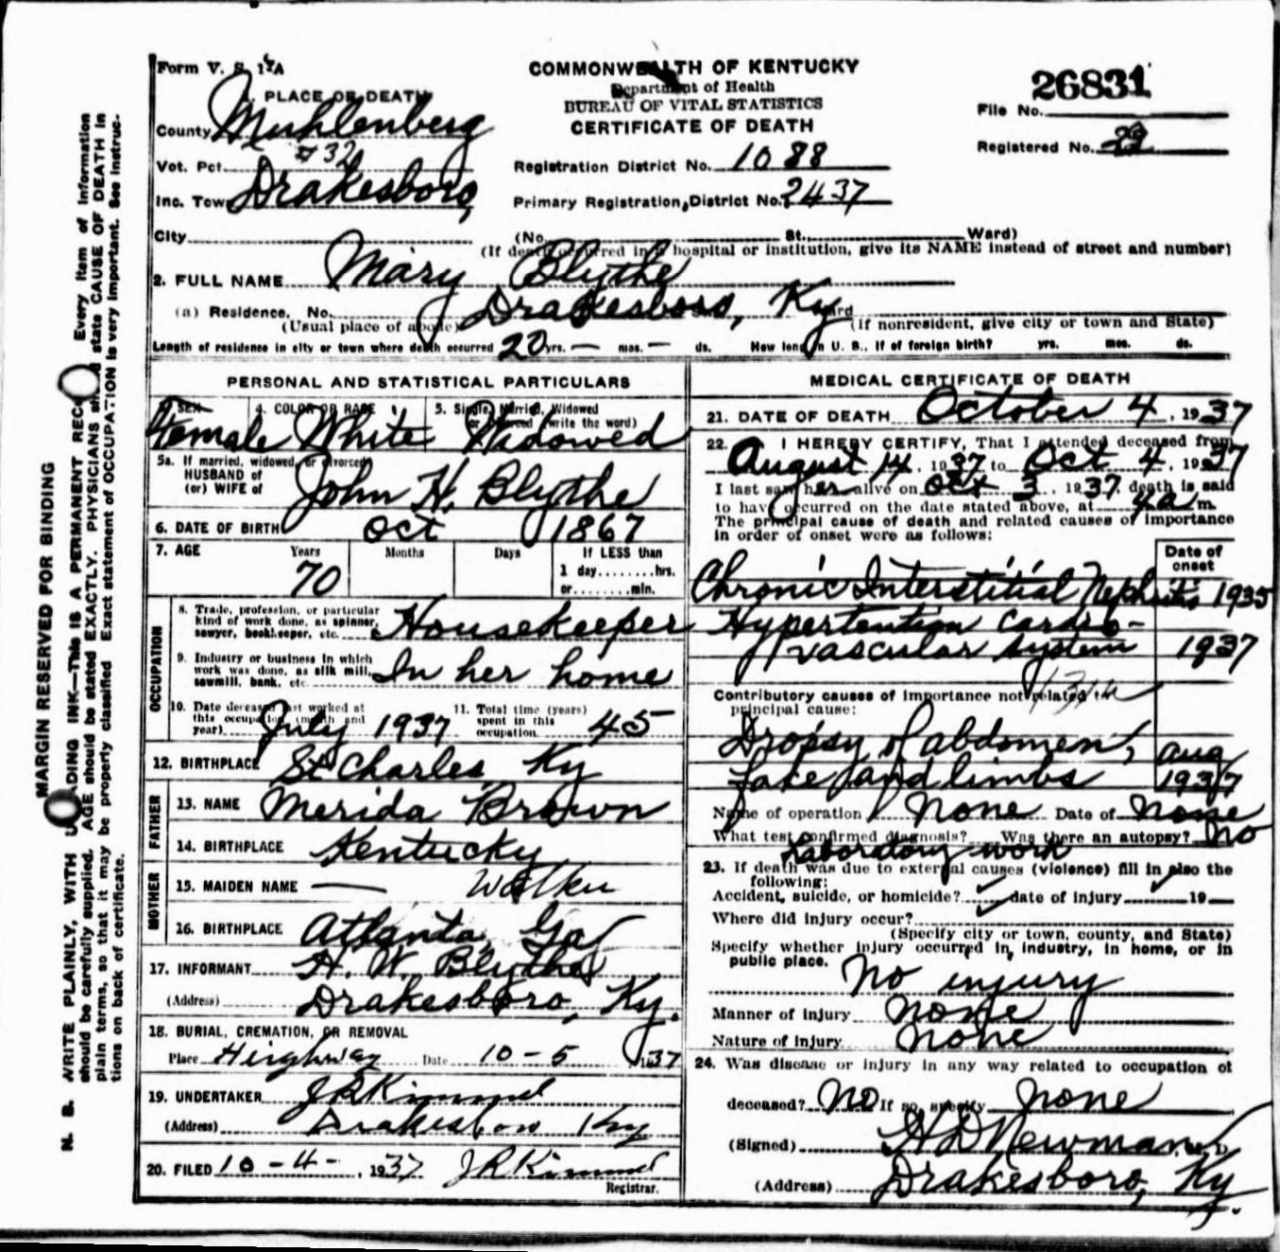 Form V. S. 1-A
COMMONWEALTH OF KENTUCKY
Department of Health
BUREAU OF VITAL STATISTICS
CERTIFICATE OF DEATH
26831
File No.
Registered No. 29
1. PLACE OF DEATH
County Muhlenberg
Vot. Pct. #32
Inc. Town Drakesboro,
Registration District No. 1088
Primary Registration District No. 2437
City (No. St. Ward)
(If death occurred in a hospital or institution, give its NAME instead of street and number)
2. FULL NAME Mary Blythe
(a) Residence. No. Drakesboro, Ky Ward
(Usual place of abode) (If nonresident, give city or town and State)
Length of residence in city or town where death occurred 20 yrs. — mos. — ds. How long in U. S., if of foreign birth? yrs. mos. ds.
PERSONAL AND STATISTICAL PARTICULARS
3. SEX 4. COLOR OR RACE 5. Single, Married, Widowed
or Divorced (write the word)
Female White Widowed
5a. If married, widowed, or divorced
HUSBAND of
(or) WIFE of John H. Blythe
6. DATE OF BIRTH Oct 1867
7. AGE Years Months Days If LESS than
70 1 day........hrs.
or........min.
OCCUPATION
8. Trade, profession, or particular
kind of work done, as spinner,
sawyer, bookkeeper, etc. Housekeeper
9. Industry or business in which
work was done, as silk mill,
sawmill, bank, etc. In her home
10. Date deceased last worked at
this occupation (month and
year) July 1937
11. Total time (years)
spent in this
occupation. 45
12. BIRTHPLACE St Charles Ky
FATHER
13. NAME Merida Brown
14. BIRTHPLACE Kentucky
MOTHER
15. MAIDEN NAME —
16. BIRTHPLACE Atlanta, Ga
17. INFORMANT H. W. Blythe
(Address) Drakesboro, Ky.
18. BURIAL, CREMATION, OR REMOVAL
Place Heighway Date 10-5 1937
19. UNDERTAKER J R Kimmel
(Address) Drakesboro Ky
20. FILED 10-4-, 1937 J R Kimmel
Registrar.
MEDICAL CERTIFICATE OF DEATH
21. DATE OF DEATH October 4, 1937
22. I HEREBY CERTIFY, That I attended deceased from
August 14, 1937 to Oct 4, 1937
I last saw her alive on Oct 3, 1937, death is said
to have occurred on the date stated above, at 4 a m.
The principal cause of death and related causes of importance
in order of onset were as follows:
Date of
onset
Chronic Interstitial Nephritis 1935
Hypertention cardio-
vascular system 1937
Contributory causes of importance not related to
principal cause:
Dropsy of abdomen, Aug
face and limbs 1937
Name of operation None Date of None
What test confirmed diagnosis? Was there an autopsy? No
Laboratory work
23. If death was due to external causes (violence) fill in also the
following:
Accident, suicide, or homicide? date of injury 19
Where did injury occur?
(Specify city or town, county, and State)
Specify whether injury occurred in industry, in home, or in
public place. No injury
Manner of injury none
Nature of injury none
24. Was disease or injury in any way related to occupation of
deceased? No If so, specify none
(Signed) H D Newman, M. D.
(Address) Drakesboro, Ky.
MARGIN RESERVED FOR BINDING
N. B. WRITE PLAINLY, WITH UNFADING INK—This IS A PERMANENT RECORD. Every item of information
should be carefully supplied. AGE should be stated EXACTLY. PHYSICIANS should state CAUSE OF DEATH in
plain terms, so that it may be properly classified. Exact statement of OCCUPATION is very important. See instruc-
tions on back of certificate.